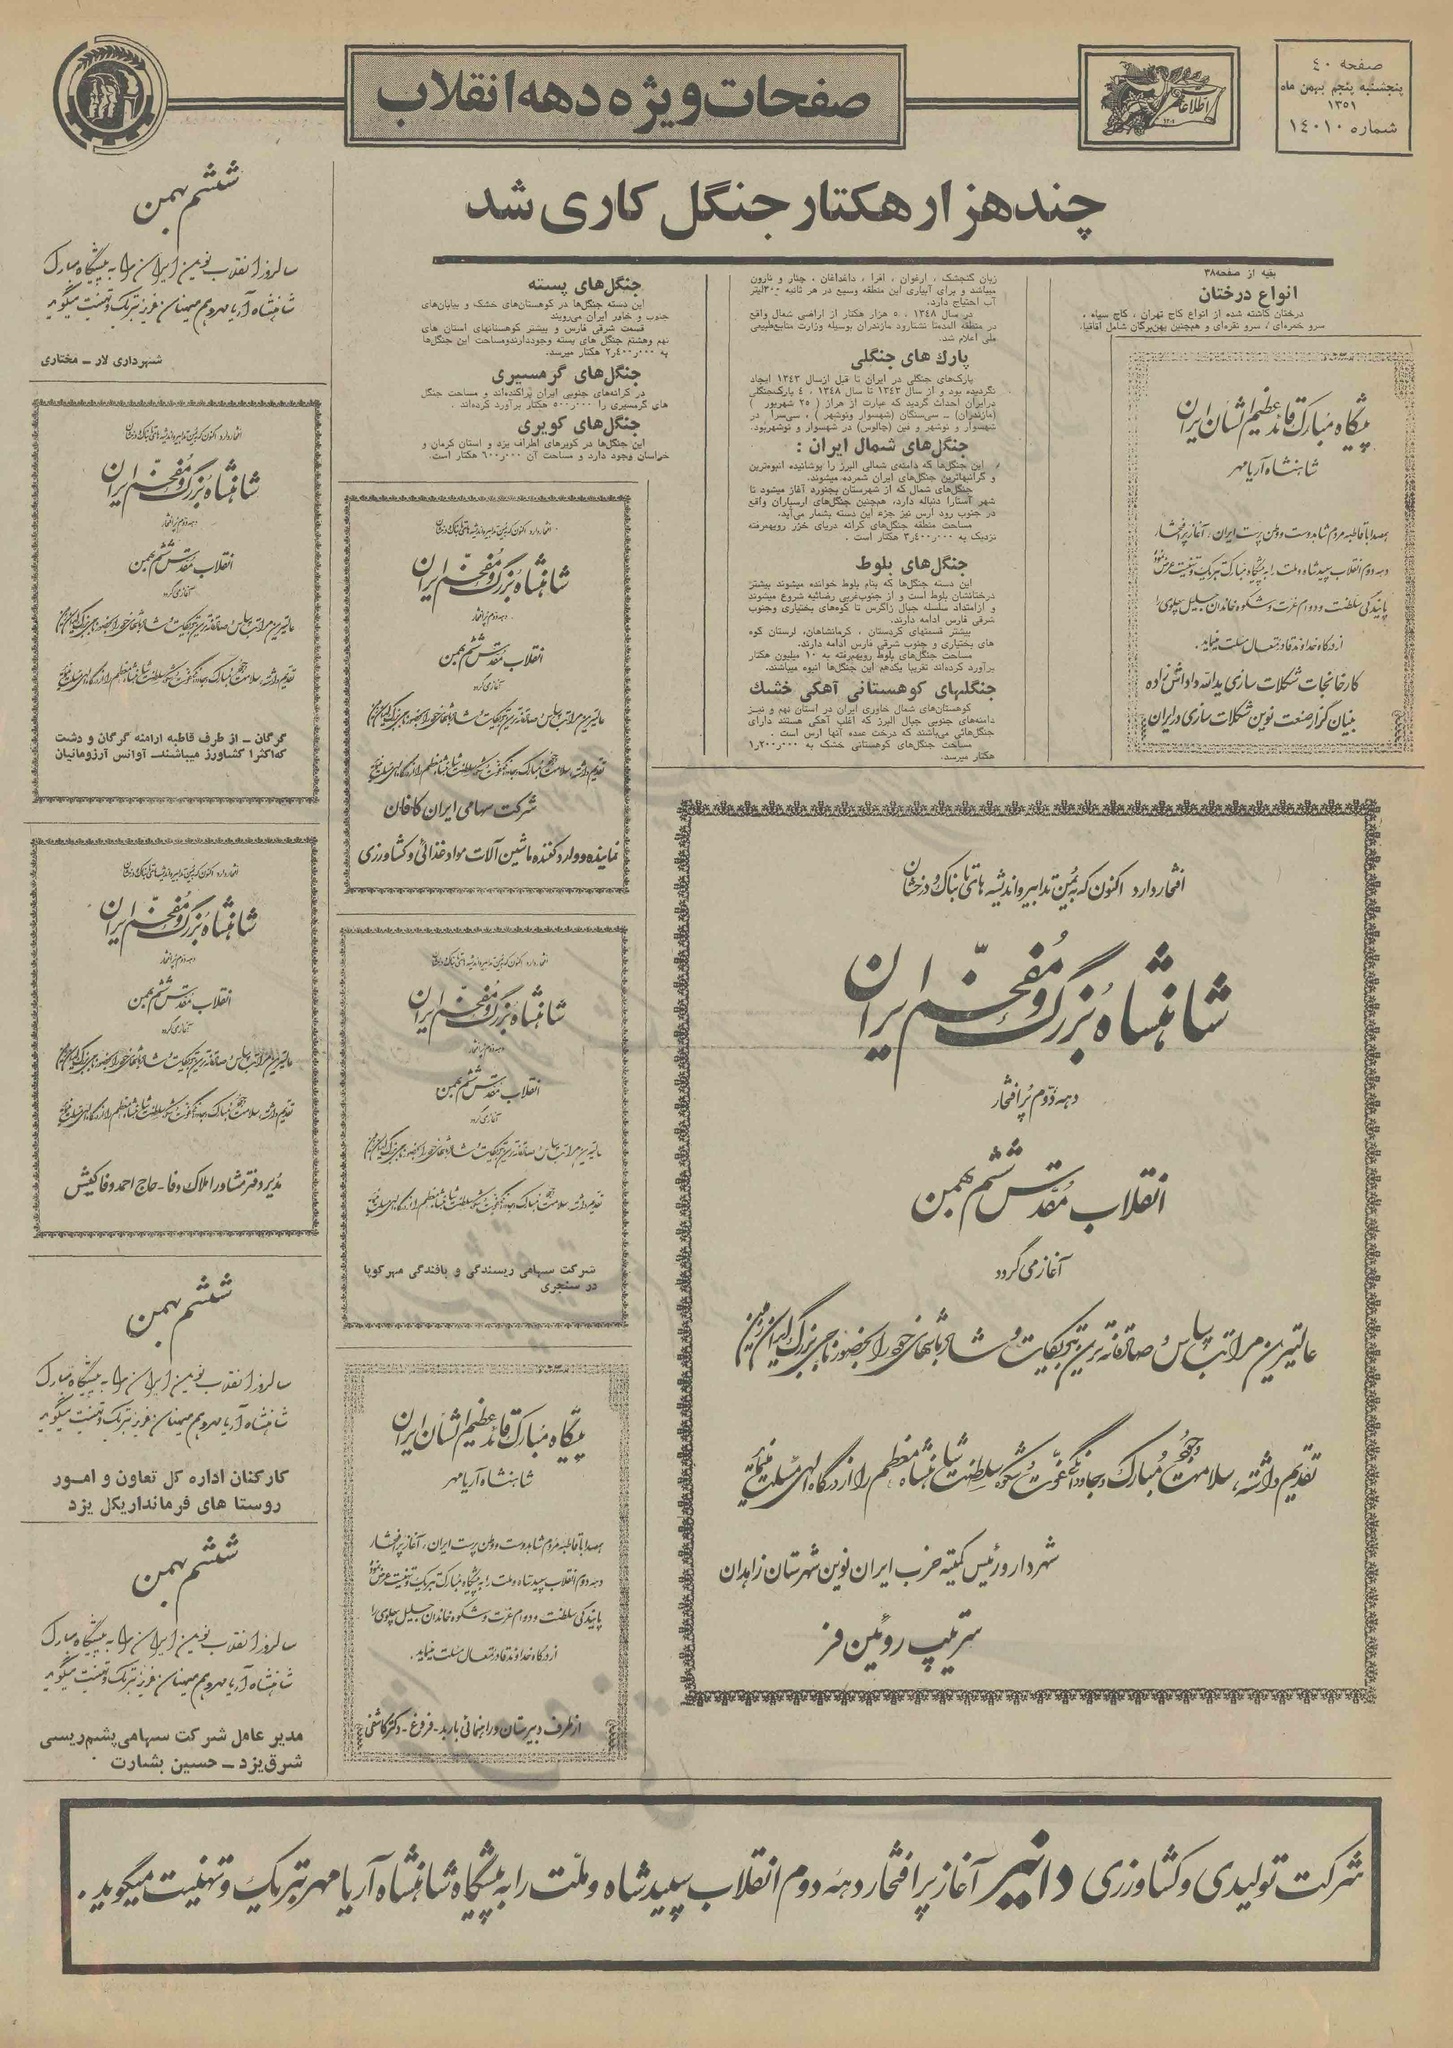 صفحه ٤٠
پنجشنبه پنجم بهمن ماه
١٣٥١
شماره ١٤٠١٠
اطلاعات
صفحات ویژه دهه انقلاب
چند هزار هکتار جنگل کاری شد
بقیه از صفحه ٣٨
انواع درختان
درختان کاشته شده از انواع کاج تهران ، کاج سیاه ،
سرو خمره‌ای ، سرو نقره‌ای و همچنین پهن‌برگان شامل آقاقیا،
زبان گنجشک ، ارغوان ، افرا ، داغداغان ، چنار و نارون
میباشد و برای آبیاری این منطقه وسیع در هر ثانیه ٣٠٠ لیتر
آب احتیاج دارد.
در سال ١٣٤٨ ، ٥ هزار هکتار از اراضی شمال واقع
در منطقه المدشا نشتارود مازندران بوسیله وزارت منابع‌طبیعی
ملی اعلام شد.
پارک های جنگلی
پارک‌های جنگلی در ایران تا قبل از سال ١٣٤٣ ایجاد
نگردیده بود و از سال ١٣٤٣ تا سال ١٣٤٨ ، ٤ پارک‌جنگلی
در ایران احداث گردید که عبارت از هراز ( ٢٥ شهریور )
(مازندران) ــ سی‌سنگان (شهسوار ونوشهر ) ، سی‌سرا در
شهسوار و نوشهر و فین (چالوس) در شهسوار و نوشهربود.
جنگل‌های شمال ایران :
این جنگل‌ها که دامنه‌ی شمالی البرز را پوشانیده انبوه‌ترین
و گرانبهاترین جنگل‌های ایران شمرده میشوند.
جنگل‌های شمال که از شهرستان بجنورد آغاز میشود تا
شهر آستارا دنباله دارد، همچنین جنگل‌های ارسباران واقع
در جنوب رود ارس نیز جزء این دسته بشمار می‌آید.
مساحت منطقه جنگل‌های کرانه دریای خزر رویهمرفته
نزدیک به ٣٬٤٠٠٬٠٠٠ هکتار است .
جنگل‌های بلوط
این دسته جنگل‌ها که بنام بلوط خوانده میشوند بیشتر
درختانشان بلوط است و از جنوب‌غربی رضائیه شروع میشوند
و ازامتداد سلسله جبال زاگرس تا کوه‌های بختیاری وجنوب
شرقی فارس ادامه دارند.
بیشتر قسمتهای کردستان ، کرمانشاهان، لرستان کوه
های بختیاری و جنوب شرقی فارس ادامه دارند.
مساحت جنگل‌های بلوط رویهمرفته به ١٠ میلیون هکتار
برآورد کرده‌اند تقریبا یکدهم این جنگل‌ها انبوه میباشند.
جنگلهای کوهستانی آهکی خشک
کوهستان‌های شمال خاوری ایران در استان نهم و نیز
دامنه‌های جنوبی جبال البرز که اغلب آهکی هستند دارای
جنگل‌هائی می‌باشند که درخت عمده آنها ارس است .
مساحت جنگل‌های کوهستانی خشک به ١٬٢٠٠٬٠٠٠
هکتار میرسد.
جنگل‌های پسته
این دسته جنگل‌ها در کوهستان‌های خشک و بیابان‌های
جنوب و خاور ایران می‌رویند
قسمت شرقی فارس و بیشتر کوهستانهای استان های
نهم وهشتم جنگل های پسته وجوددارندومساحت این جنگل‌ها
به ٢٬٤٠٠٬٠٠٠ هکتار میرسد.
جنگل‌های گرمسیری
در کرانه‌های جنوبی ایران پراکنده‌اند و مساحت جنگل
های گرمسیری را ٥٠٠٬٠٠٠ هکتار برآورد کرده‌اند .
جنگل‌های کویری
این جنگل‌ها در کویرهای اطراف یزد و استان کرمان و
خراسان وجود دارد و مساحت آن ٦٠٠٬٠٠٠ هکتار است.
پیشگاه مبارک قائد عظیم‌الشأن ایران
شاهنشاه آریامهر
همصدا با قاطبه مردم شاهدوست و وطن پرست ایران ، آغاز پرافتخار
دهه دوم انقلاب سپید شاه و ملت را به پیشگاه مبارک تبریک و تهنیت عرض نموده
پایندگی سلطنت و دوام عزت و شکوه خاندان جلیل پهلوی را
از درگاه خداوند قادر متعال مسئلت مینماید .
کارخانجات شکلات سازی یدالله داداش زاده
بنیان گزار صنعت نوین شکلات سازی در ایران
افتخار دارد اکنون که به یُمن تدابیر و اندیشه های تابناک و درخشان
شاهنشاه بزرگ و مفخّم ایران
دهه دوّم پُر افتخار
انقلاب مُقدّس ششم بهمن
آغاز می گردد
عالیترین مراتب سپاس و صادقانه ترین تبریکات و شادباشهای خود را بحضور تاجی بزرگ ایران زمین
تقدیم داشته، سلامت وجود مبارک و جاودانگی عزّت و شکوه سلطنت شاهنشاه معظم را از درگاه الهی مسئلت مینماید
شهردار و رئیس کمیته حزب ایران نوین شهرستان زاهدان
سرتیپ روئین فر
افتخار دارد اکنون که به یمن تدابیر و اندیشه های تابناک و درخشان
شاهنشاه بزرگ و مفخّم ایران
دهه دوم پر افتخار
انقلاب مقدّس ششم بهمن
آغاز می گردد
عالیترین مراتب سپاس و صادقانه ترین تبریکات و شادباشهای خود را بحضور تاجی بزرگ ایران زمین
تقدیم داشته، سلامت وجود مبارک و جاودانگی عزت و شکوه سلطنت شاهنشاه معظم را از درگاه الهی مسئلت مینماید
شرکت سهامی ایران کافان
نماینده و وارد کننده ماشین آلات مواد غذائی و کشاورزی
افتخار دارد اکنون که به یمن تدابیر و اندیشه های تابناک و درخشان
شاهنشاه بزرگ و مفخّم ایران
دهه دوم پر افتخار
انقلاب مقدّس ششم بهمن
آغاز می گردد
عالیترین مراتب سپاس و صادقانه ترین تبریکات و شادباشهای خود را بحضور تاجی بزرگ ایران زمین
تقدیم داشته، سلامت وجود مبارک و جاودانگی عزت و شکوه سلطنت شاهنشاه معظم را از درگاه الهی مسئلت مینماید
شرکت سهامی ریسندگی و بافندگی مهر کویا
در سنجری
پیشگاه مبارک قائد عظیم‌الشأن ایران
شاهنشاه آریامهر
همصدا با قاطبه مردم شاهدوست و وطن پرست ایران ، آغاز پرافتخار
دهه دوم انقلاب سپید شاه و ملت را به پیشگاه مبارک تبریک و تهنیت عرض نموده
پایندگی سلطنت و دوام عزت و شکوه خاندان جلیل پهلوی را
از درگاه خداوند قادر متعال مسئلت مینماید .
از طرف دبیرستان و راهنمائی باربد - فروغ - دکتر کاشفی
ششم بهمن
سالروز انقلاب نوین ایران را به پیشگاه مبارک
شاهنشاه آریامهر و هم میهنان عزیز تبریک و تهنیت میگوید
شهرداری لار ــ مختاری
افتخار دارد اکنون که به یمن تدابیر و اندیشه های تابناک و درخشان
شاهنشاه بزرگ و مفخّم ایران
دهه دوم پر افتخار
انقلاب مقدّس ششم بهمن
آغاز می گردد
عالیترین مراتب سپاس و صادقانه ترین تبریکات و شادباشهای خود را بحضور تاجی بزرگ ایران زمین
تقدیم داشته، سلامت وجود مبارک و جاودانگی عزت و شکوه سلطنت شاهنشاه معظم را از درگاه الهی مسئلت مینماید
گرگان ــ از طرف قاطبه ارامنه گرگان و دشت
که اکثرا کشاورز میباشند ــ آوانس آرزومانیان
افتخار دارد اکنون که به یمن تدابیر و اندیشه های تابناک و درخشان
شاهنشاه بزرگ و مفخّم ایران
دهه دوم پر افتخار
انقلاب مقدّس ششم بهمن
آغاز می گردد
عالیترین مراتب سپاس و صادقانه ترین تبریکات و شادباشهای خود را بحضور تاجی بزرگ ایران زمین
تقدیم داشته، سلامت وجود مبارک و جاودانگی عزت و شکوه سلطنت شاهنشاه معظم را از درگاه الهی مسئلت مینماید
مدیر دفتر مشاور املاک وفا - حاج احمد وفاکیش
ششم بهمن
سالروز انقلاب نوین ایران را به پیشگاه مبارک
شاهنشاه آریامهر و هم میهنان عزیز تبریک و تهنیت میگوید
کارکنان اداره کل تعاون و امور
روستا های فرمانداریکل یزد
ششم بهمن
سالروز انقلاب نوین ایران را به پیشگاه مبارک
شاهنشاه آریامهر و هم میهنان عزیز تبریک و تهنیت میگوید
مدیر عامل شرکت سهامی پشم‌ریسی
شرق یزد ــ حسین بشارت
شرکت تولیدی و کشاورزی دانیر آغاز پر افتخار دهه دوم انقلاب سپید شاه و ملّت را به پیشگاه شاهنشاه آریامهر تبریک و تهنیت میگوید .